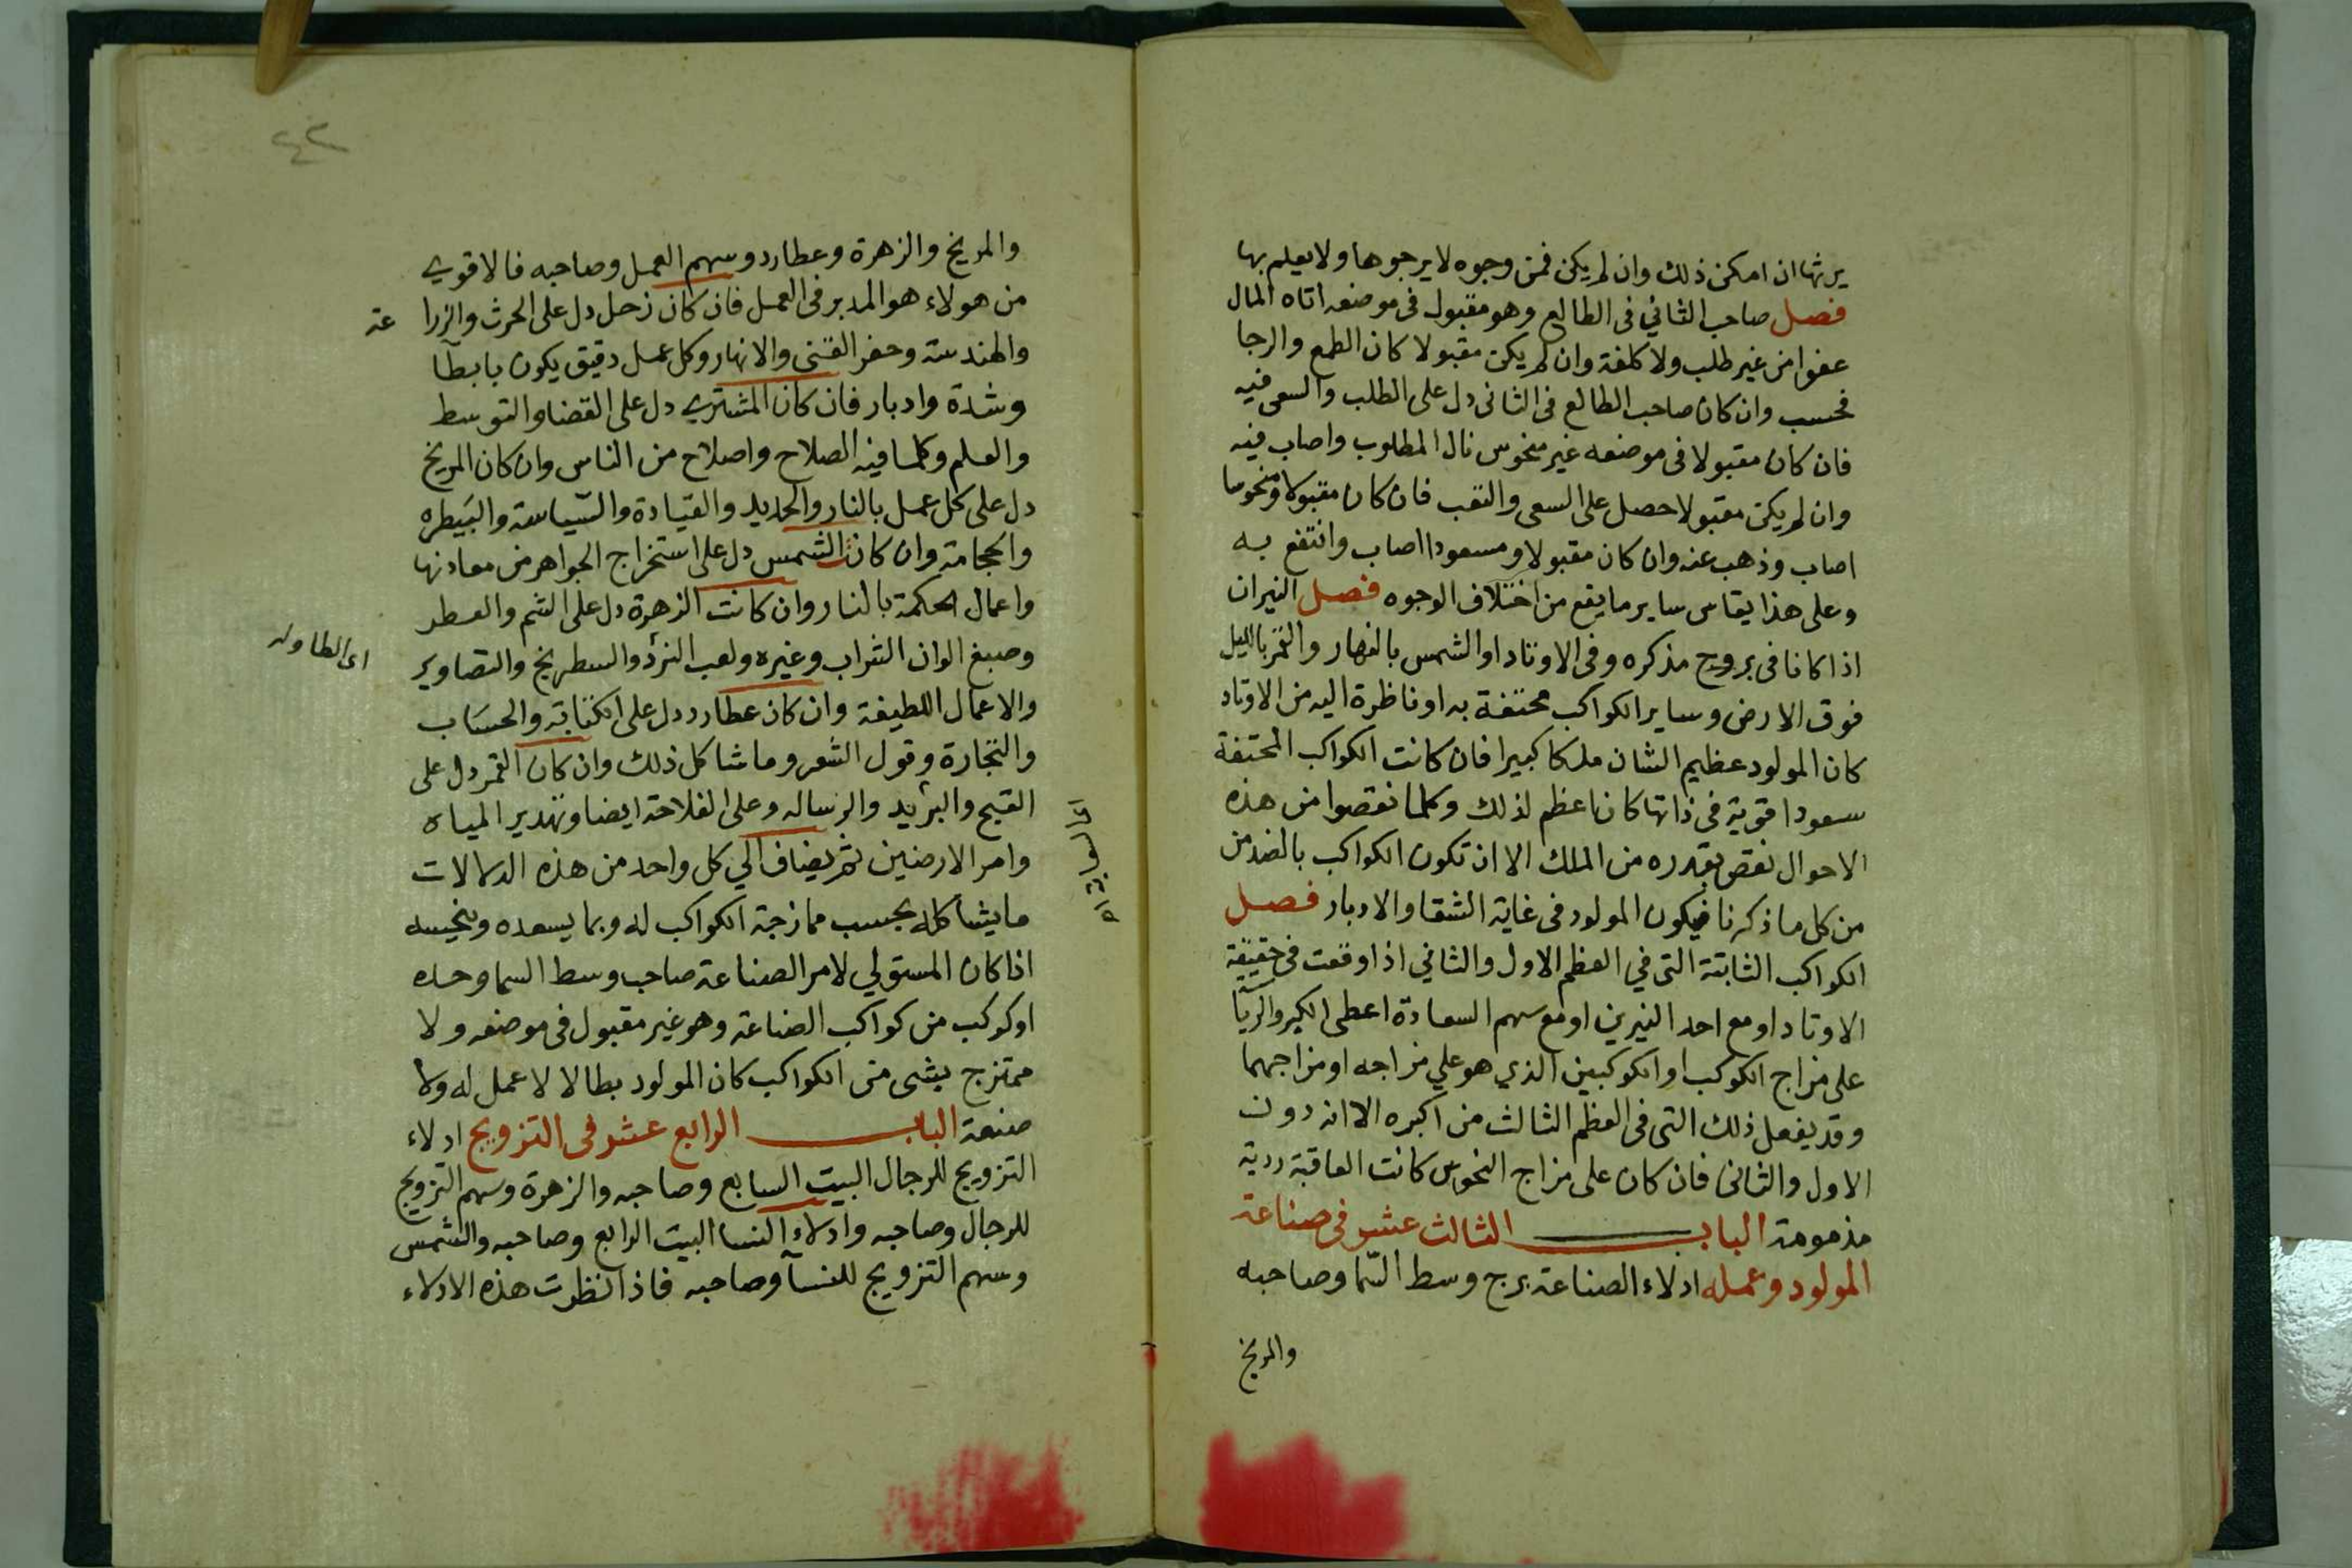 يرثها ان امكن ذلك وان لم يكن فمن وجوه لا يرجوها ولا يعلم بها
فصل صاحب الثاني في الطالع وهو مقبول في موضعه اتاه المال
عفوا من غير طلب ولا كلفة وان لم يكن مقبولا كان الطمع والرجا
فحسب وان كان صاحب الطالع في الثاني دل على الطلب والسعى فيه
فان كان مقبولا في موضعه غير منحوس نال المطلوب واصاب فيه
وان لم يكن مقبولا حصل على السعى والتعب فان كان مقبولا ومنحوسا
اصاب وذهب عنه وان كان مقبولا ومسعودا اصاب وانتفع به
وعلى هذا يقاس ساير ما يقع من اختلاف الوجوه فصل النيران
اذا كانا في بروج مذكره وفي الاوتاد او الشمس بالنهار والقمر بالليل
فوق الارض وساير الكواكب محتفة به او ناظرة اليه من الاوتاد
كان المولود عظيم الشان ملكا كبيرا فان كانت الكواكب المحتفة
سعودا قوية في ذاتها كان اعظم لذلك وكلما نقصوا من هذه
الاحوال نقص بقدره من الملك الا ان تكون الكواكب بالضد من
من كل ما ذكرنا فيكون المولود في غاية الشقا والادبار فصل
الكواكب الثابتة التي في العظم الاول والثاني اذا وقعت في حقيقة
الاوتاد او مع احد النيرين او مع سهم السعادة اعطى الكبر والريا
على مزاج الكوكب او الكوكبين الذي هو علي مزاجه او مزاجهما
وقد يفعل ذلك التي في العظم الثالث من اكبره الا انه دون
الاول والثاني فان كان على مزاج النحوس كانت العاقبة ردية
مذمومة الباب الثالث عشر في صناعة
المولود وعمله ادلاء الصناعة برج وسط السما وصاحبه
والمريخ
٤٣
والمريخ والزهرة وعطارد وسهم العمل وصاحبه فالاقوي
من هولاء هو المدبر في العمل فان كان زحل دل على الحرث والزرا عة
والهندسة وحفر القنى والانهار وكل عمل دقيق يكون بابطآ
وشدة وادبار فان كان المشتري دل على القضا والتوسط
والعلم وكلما فيه الصلاح واصلاح من الناس وان كان المريخ
دل على كل عمل بالنار والحديد والقيادة والسياسة والبيطره
والحجامة وان كان الشمس دل على استخراج الجواهر من معادنها
واعمال الحكمة بالنار وان كانت الزهرة دل على الشم والعطر
وصبغ الوان التراب وغيره ولعب النرد والسطرنج والتصاوير
اى الطاوله
والاعمال اللطيفة وان كان عطارد دل على الكتابة والحساب
والتجارة وقول الشعر وما شاكل ذلك وان كان القمر دل على
القيج والبريد والرساله وعلى الفلاحة ايضا وتدبير المياه
وامر الارضين ثم يضاف الي كل واحد من هذه الدلالات
ما يشاكله بحسب ممازجة الكواكب له وبما يسعده وينحسه
اذا كان المستولي لامر الصناعة صاحب وسط السما وحده
او كوكب من كواكب الصناعة وهو غير مقبول في موضعه ولا
ممتزج بشى من الكواكب كان المولود بطالا لا عمل له ولا
صنعة الباب الرابع عشر في التزويج ادلاء
التزويج للرجال البيت السابع وصاحبه والزهرة وسهم التزويج
للرجال وصاحبه وادلاء النسا البيت الرابع وصاحبه والشمس
وسهم التزويج للنسآ وصاحبه فاذا نظرت هذه الادلاء